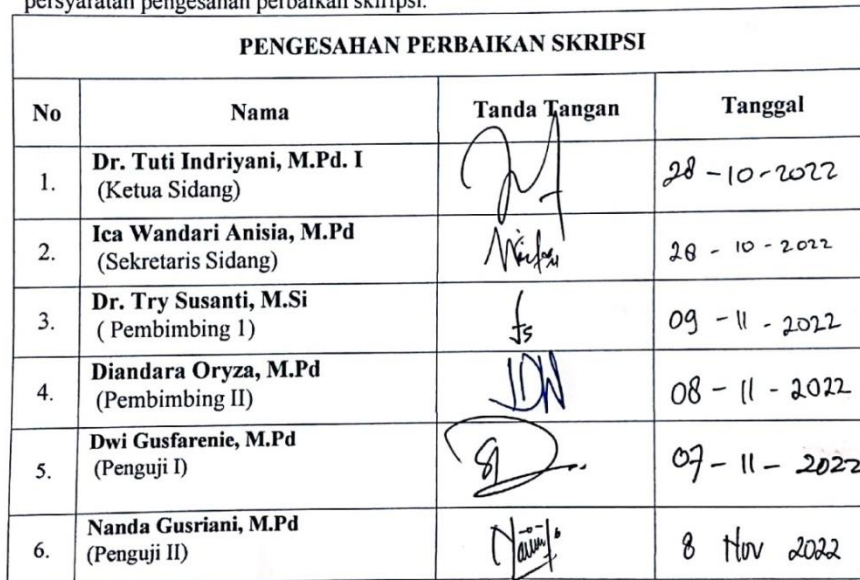 persyaratan pengesahan perbaikan skripsi.
PENGESAHAN PERBAIKAN SKRIPSI
No Nama Tanda Tangan Tanggal
1. Dr. Tuti Indriyani, M.Pd. I
(Ketua Sidang)
28 - 10 - 2022
2. Ica Wandari Anisia, M.Pd
(Sekretaris Sidang)
28 - 10 - 2022
3. Dr. Try Susanti, M.Si
( Pembimbing 1)
09 - 11 - 2022
4. Diandara Oryza, M.Pd
(Pembimbing II)
08 - 11 - 2022
5. Dwi Gusfarenie, M.Pd
(Penguji I)
07 - 11 - 2022
6. Nanda Gusriani, M.Pd
(Penguji II)
8 Nov 2022